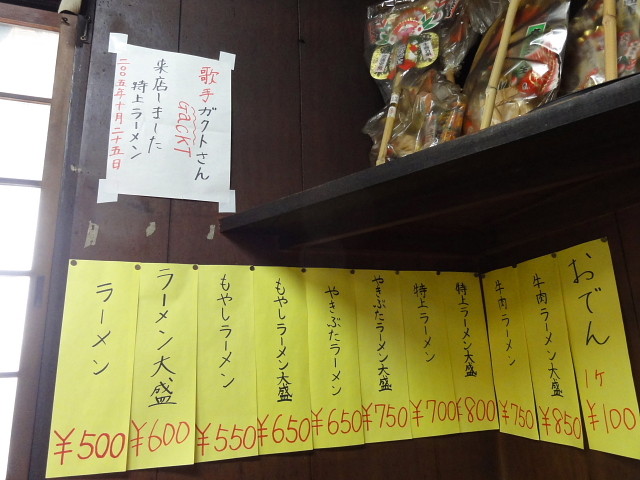 歌手ガクトさん
GACKT
来店しました
特上ラーメン
二〇〇五年十月二十五日
ラーメン
¥500
ラーメン大盛
¥600
もやしラーメン
¥550
もやしラーメン大盛
¥650
やきぶたラーメン
¥650
やきぶたラーメン大盛
¥750
特上ラーメン
¥700
特上ラーメン大盛
¥800
牛肉ラーメン
¥750
牛肉ラーメン大盛
¥850
おでん
1ヶ
¥100